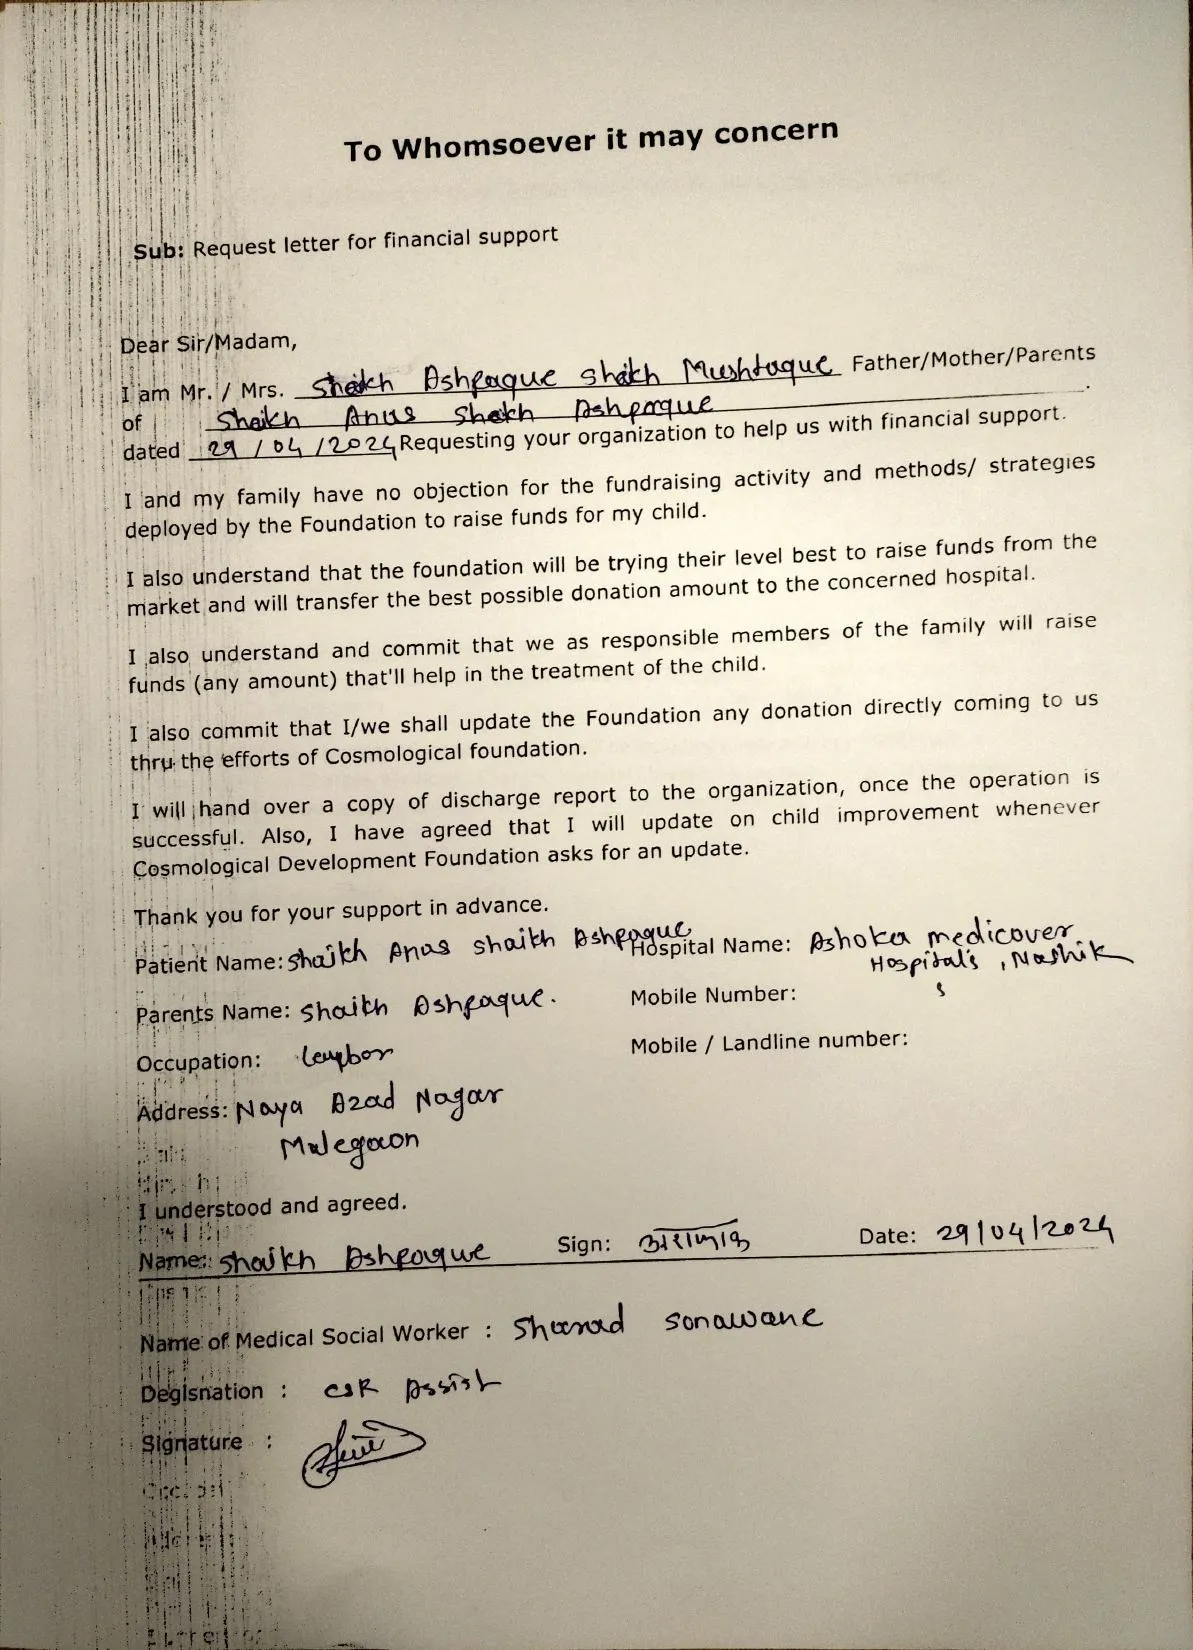 To Whomsoever it may concern
Sub: Request letter for financial support
Dear Sir/Madam,
I am Mr. / Mrs. Shaikh Ashpaque Shaikh Mushtaque Father/Mother/Parents
of Shaikh Anas Shaikh Ashpaque.
dated 29/04/2024 Requesting your organization to help us with financial support.
I and my family have no objection for the fundraising activity and methods/ strategies
deployed by the Foundation to raise funds for my child.
I also understand that the foundation will be trying their level best to raise funds from the
market and will transfer the best possible donation amount to the concerned hospital.
I also understand and commit that we as responsible members of the family will raise
funds (any amount) that'll help in the treatment of the child.
I also commit that I/we shall update the Foundation any donation directly coming to us
thru the efforts of Cosmological foundation.
I will hand over a copy of discharge report to the organization, once the operation is
successful. Also, I have agreed that I will update on child improvement whenever
Cosmological Development Foundation asks for an update.
Thank you for your support in advance.
Patient Name: Shaikh Anas Shaikh Ashpaque Hospital Name: Ashoka medicover
Hospital's, Nashik
Parents Name: Shaikh Ashpaque. Mobile Number:
Occupation: Mobile / Landline number:
Address: Naya Azad Nagar
Malegaon
I understood and agreed.
Name: Shaikh Ashpaque Sign: Date: 29/04/2024
Name of Medical Social Worker : Sharad sonawane
Degisnation : CSR Assist
Signature :